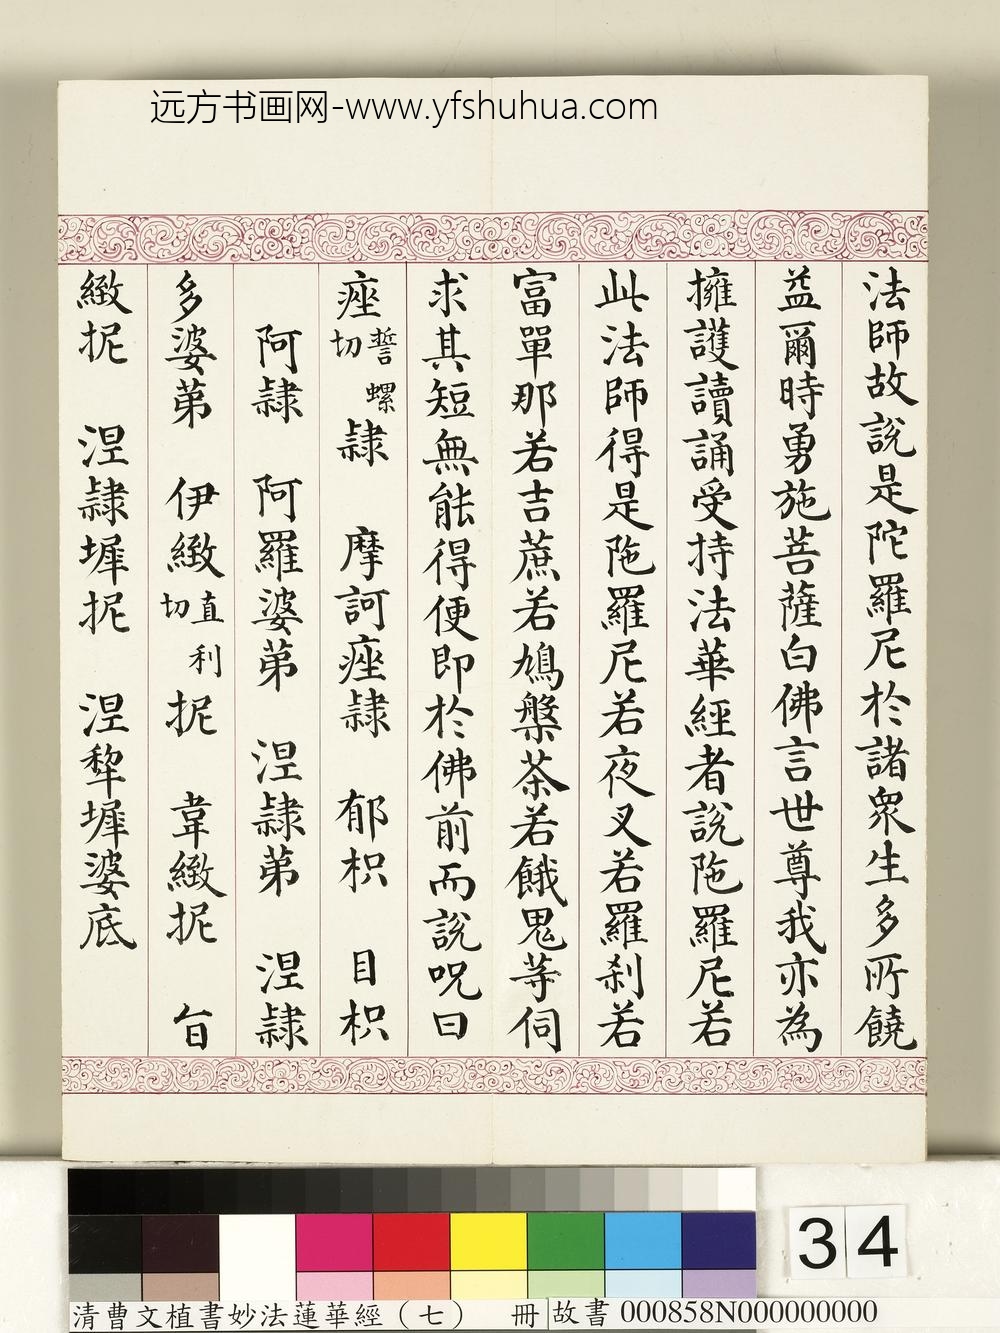 远方书画网-www.yfshuhua.com
法師故說是陀羅尼於諸衆生多所饒
益爾時勇施菩薩白佛言世尊我亦為
擁護讀誦受持法華經者說陁羅尼若
此法師得是陁羅尼若夜叉若羅剎若
富單那若吉蔗若鳩槃茶若餓鬼等伺
求其短無能得便即於佛前而說呪曰
痤誓螺切隸 摩訶痤隸 郁枳 目枳
阿隸 阿羅婆第 涅隸第 涅隸
多婆第 伊緻直利切抳 韋緻抳 旨
緻抳 涅隸墀抳 涅犂墀婆底
34
清曹文植書妙法蓮華經（七） 冊
故書 000858N000000000